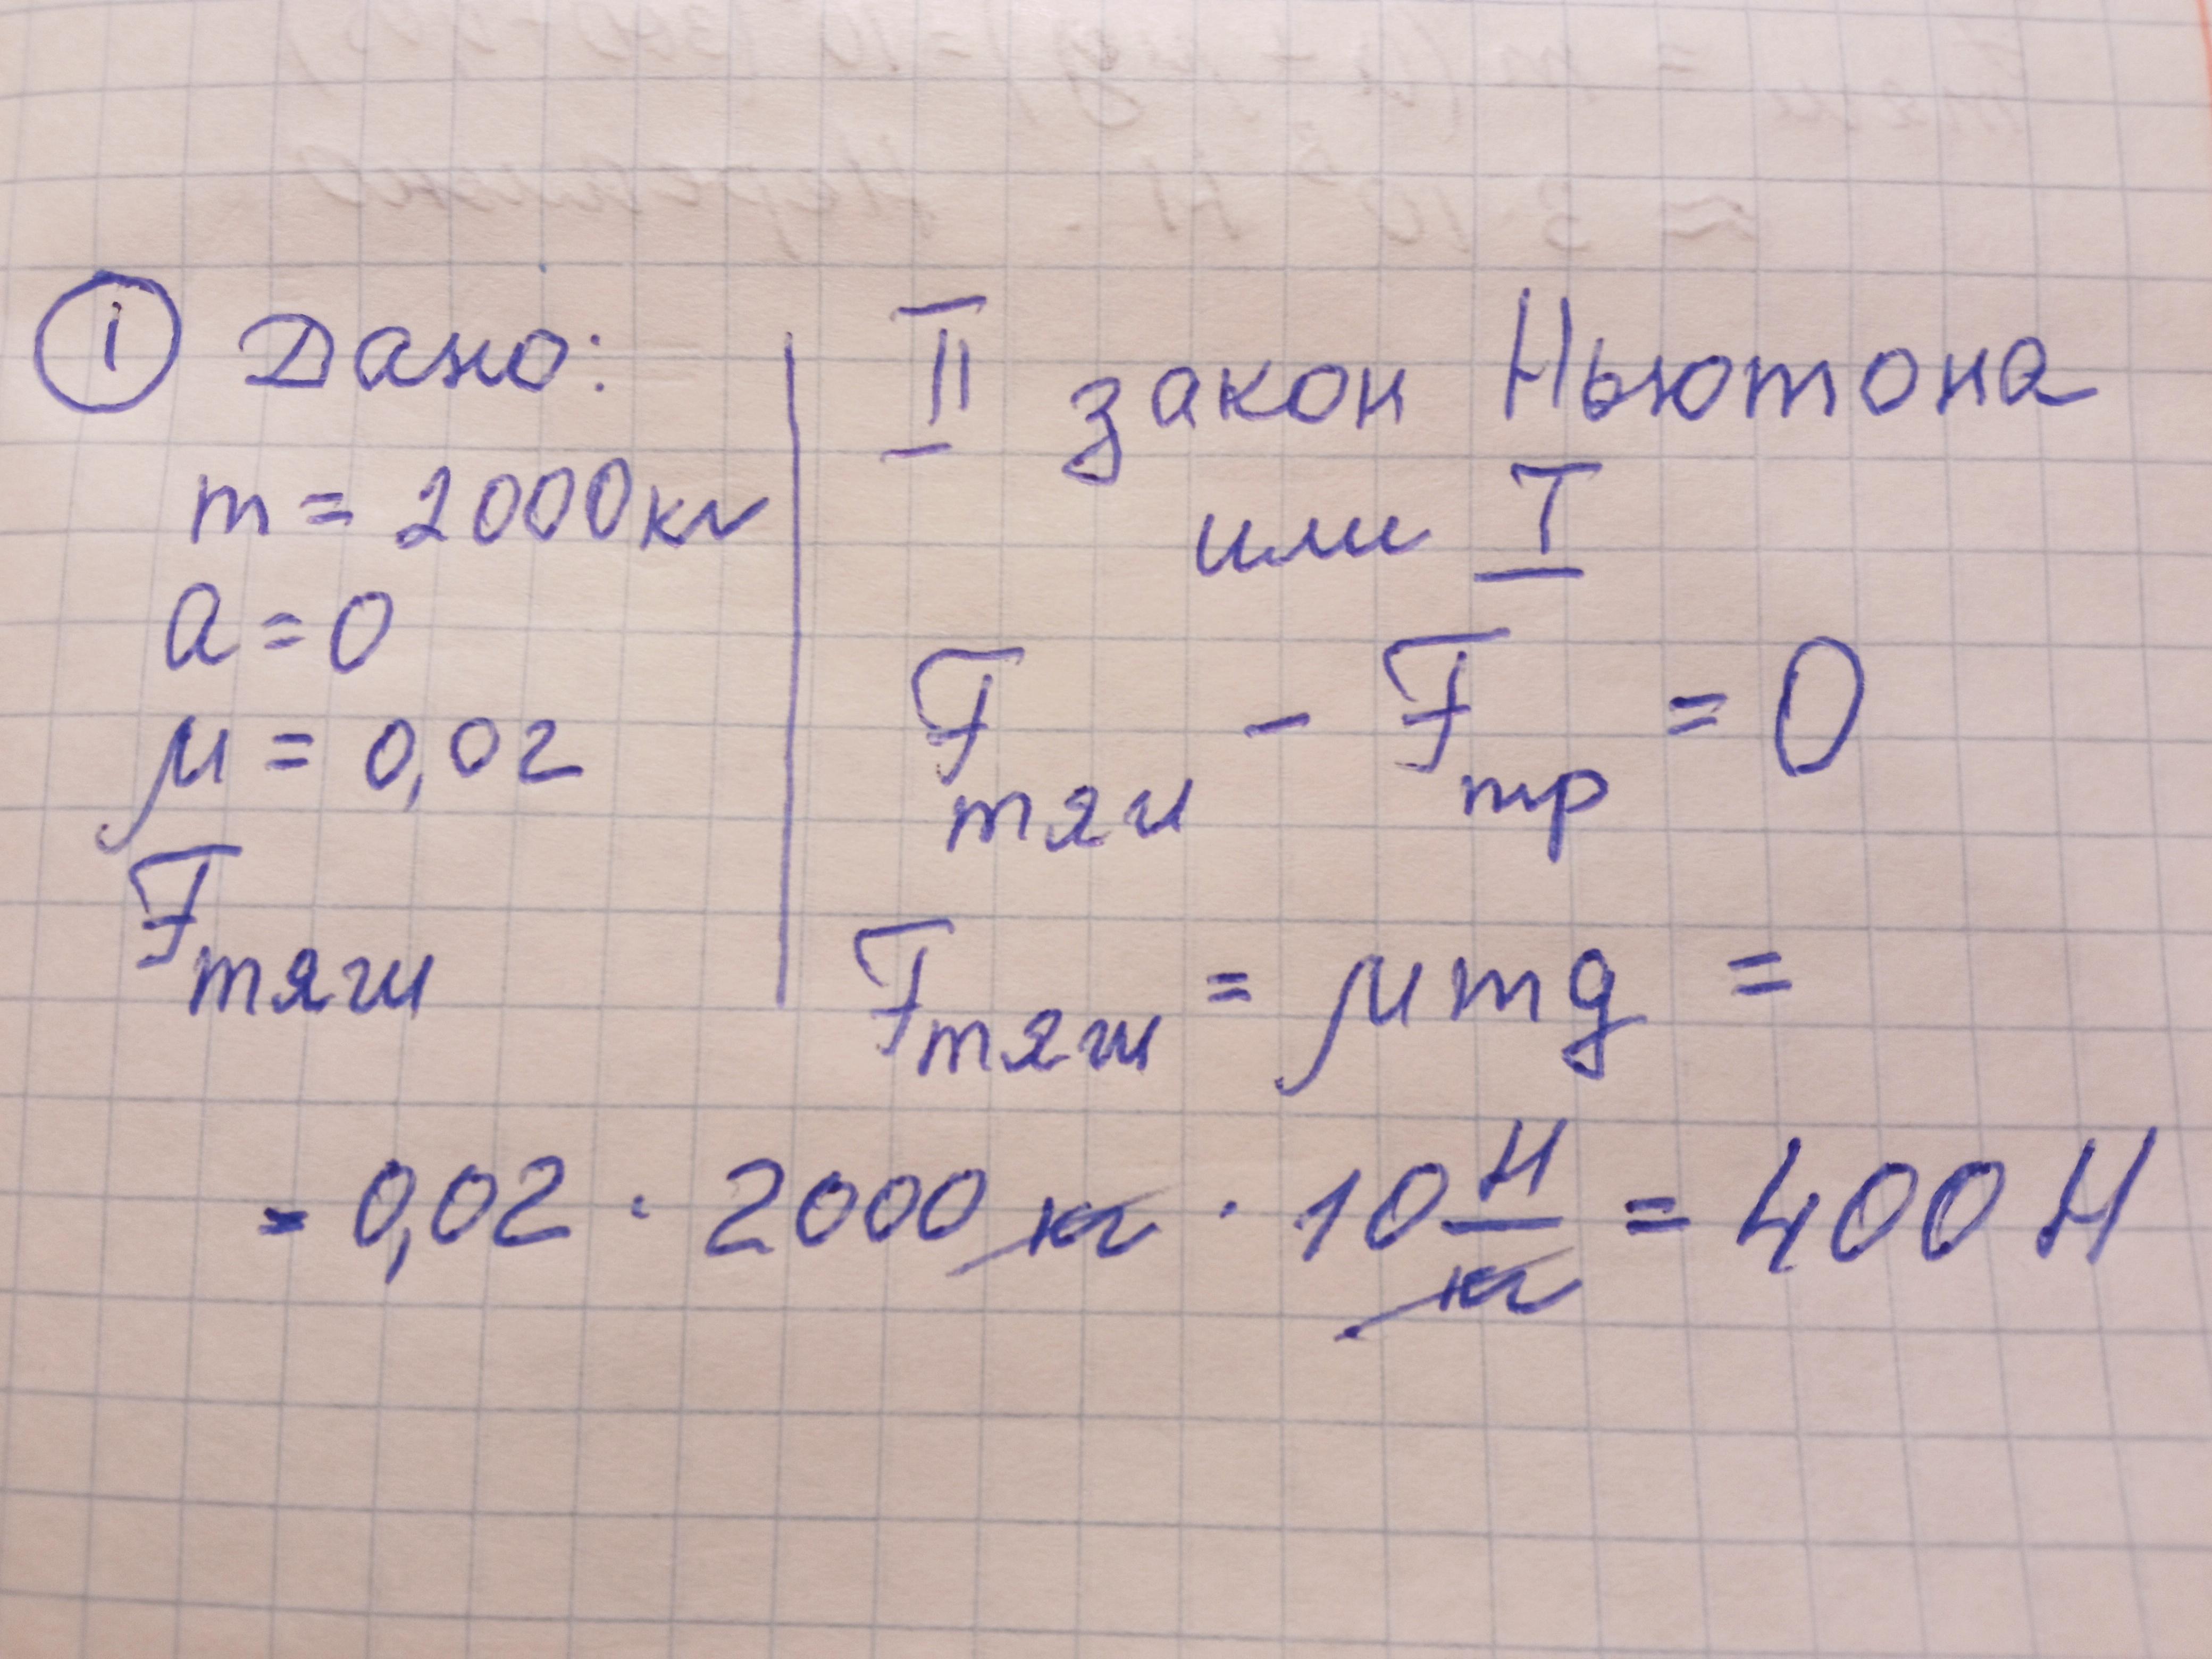 ① Дано:
m = 2000 кг
a = 0
μ = 0,02
Fтяги
II закон Ньютона
или I
Fтяги - Fтр = 0
Fтяги = μmg =
= 0,02 · 2000 кг · 10 Н/кг = 400 Н